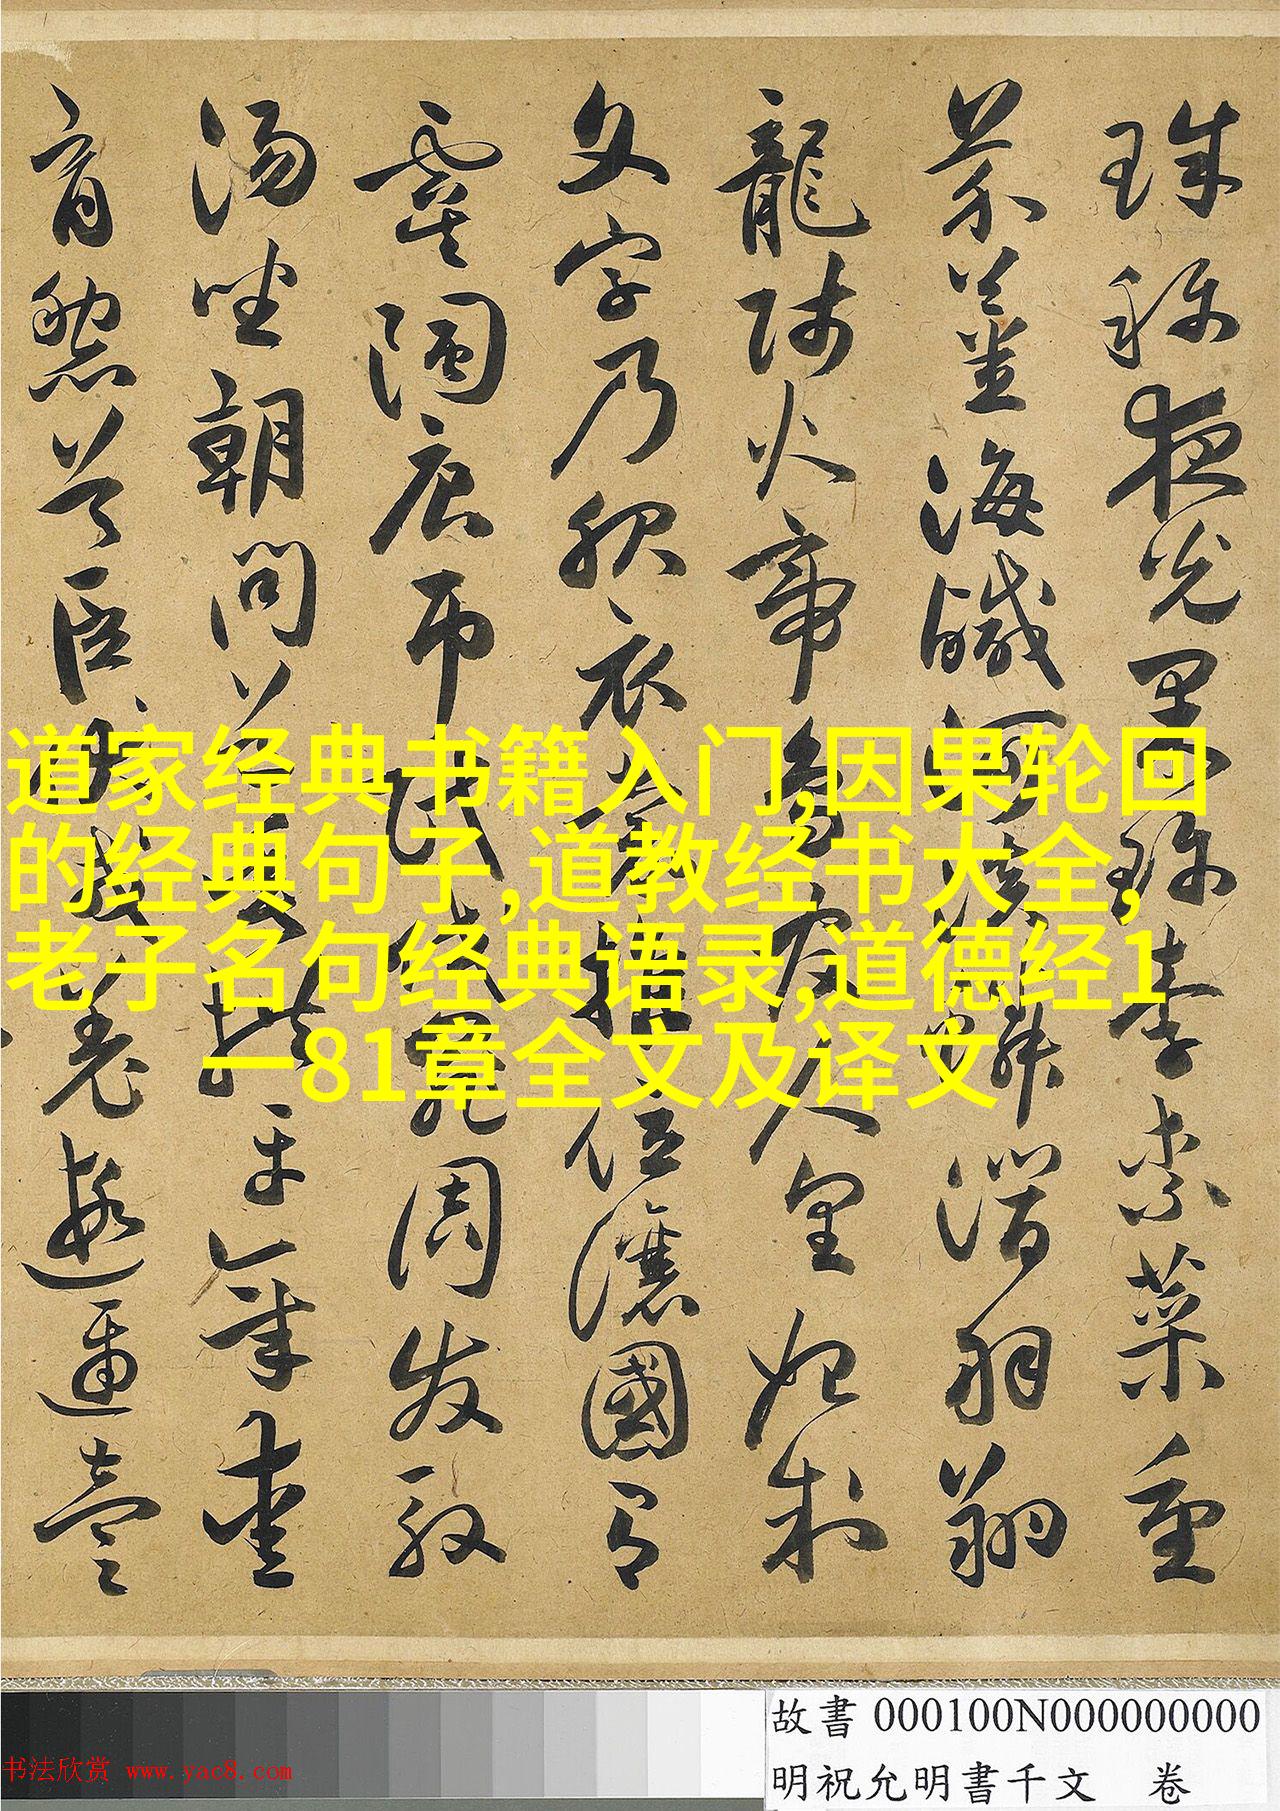 珠稱夜光果珍李柰菜重
芥薑海鹹河淡鱗潛羽翔
龍師火帝鳥官人皇始制
文字乃服衣裳推位讓國有
虞陶唐弔民伐罪周發殷
湯坐朝問道垂拱平章愛
育黎首臣伏戎羌遐邇壹
道家经典书籍入门,因果轮回
的经典句子,道教经书大全,
老子名句经典语录,道德经1
一81章全文及译文
故書 000100N000000000
明祝允明書千文 卷
书法欣赏 www.yac8.com